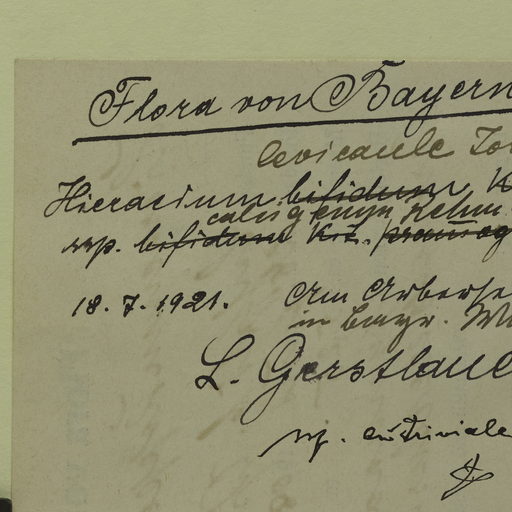 Flora von Bayern
levicaule Jor
Hieracium bifidum K
caligenum Zahn
ssp. bifidum Kit.
18. 7. 1921. Am Arberse
in bayr. W
L. Gerstlaue
ssp. eutriviale